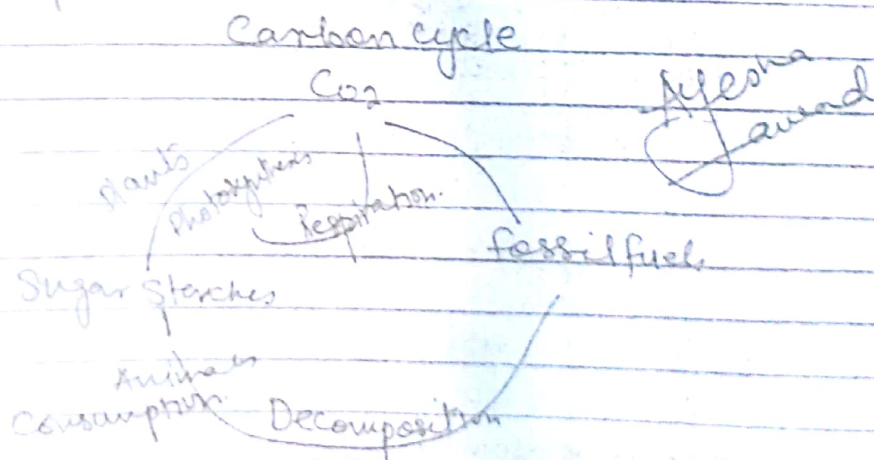 Carbon cycle
CO2
Ayesha
Javend
Plants
Photosynthesis
Respiration.
fossil fuel
Sugar Starches
Animals
Consumption
Decomposition